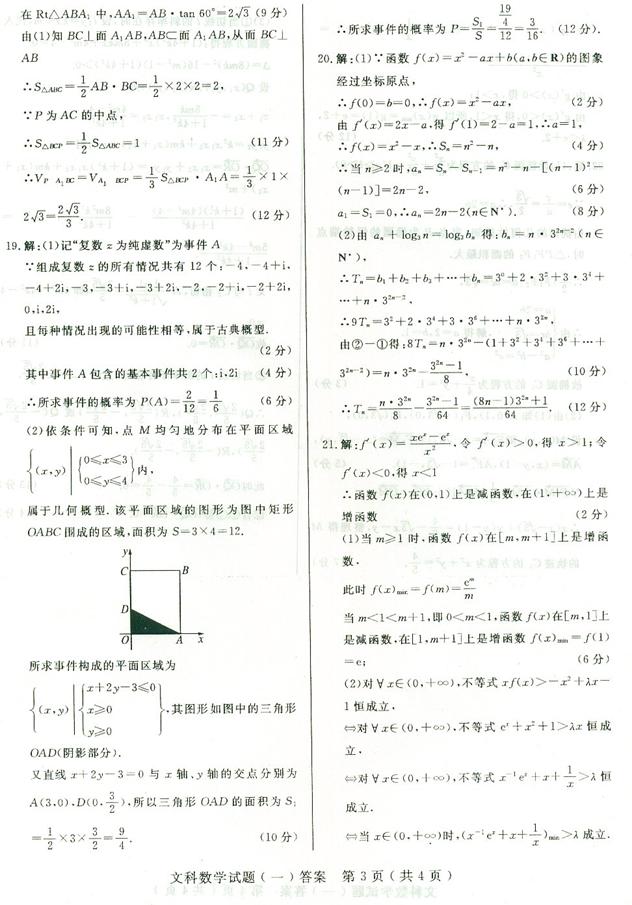 在 Rt△ABA₁ 中,AA₁=AB·tan 60°=2√3 (9分)
由(1)知 BC⊥面 A₁AB,AB⊂面 A₁AB,从而 BC⊥
AB
∴S△ABC=1/2 AB·BC=1/2×2×2=2,
∵P 为 AC 的中点,
∴S△BCP=1/2 S△ABC=1 (11分)
∴V P-A₁BC=V A₁-BCP=1/3 S△BCP·A₁A=1/3×1×
2√3=2√3/3. (12分)
19.解:(1)记“复数 z 为纯虚数”为事件 A
∵组成复数 z 的所有情况共有 12 个:-4,-4+i,
-4+2i,-3,-3+i,-3+2i,-2,-2+i,-2+2i,
0,i,2i,
且每种情况出现的可能性相等,属于古典概型.
(2分)
其中事件 A 包含的基本事件共 2 个:i,2i (4分)
∴所求事件的概率为 P(A)=2/12=1/6 (6分)
(2)依条件可知,点 M 均匀地分布在平面区域
{(x,y)|{0≤x≤3 0≤y≤4}内,
属于几何概型.该平面区域的图形为图中矩形
OABC 围成的区域,面积为 S=3×4=12.
y
C B
D
O A x
所求事件构成的平面区域为
{(x,y)|{x+2y-3≤0 x≥0 y≥0},其图形如图中的三角形
OAD(阴影部分).
又直线 x+2y-3=0 与 x 轴、y 轴的交点分别为
A(3,0),D(0,3/2),所以三角形 OAD 的面积为 S₁
=1/2×3×3/2=9/4. (10分)
∴所求事件的概率为 P=S₁/S=(19/4)/12=3/16. (12分).
20.解:(1)∵函数 f(x)=x²-ax+b(a,b∈R)的图象
经过坐标原点,
∴f(0)=b=0,∴f(x)=x²-ax, (2分)
由 f′(x)=2x-a,得 f′(1)=2-a=1,∴a=1,
∴f(x)=x²-x,∴Sₙ=n²-n, (4分)
∴当 n≥2 时,aₙ=Sₙ-Sₙ₋₁=n²-n-[(n-1)²-
(n-1)]=2n-2, (6分)
a₁=S₁=0,∴aₙ=2n-2(n∈N*). (8分)
(2)由 aₙ+log₃n=log₃bₙ 得:bₙ=n·3²ⁿ⁻² (n∈
N*),
∴Tₙ=b₁+b₂+b₃+…+bₙ=3⁰+2·3²+3·3⁴+
…+n·3²ⁿ⁻²,
∴9Tₙ=3²+2·3⁴+3·3⁶+…+n·3²ⁿ,
由②-①得:8Tₙ=n·3²ⁿ-(1+3²+3⁴+3⁶+…+
3²ⁿ⁻²)=n·3²ⁿ-(3²ⁿ-1)/8. (10分)
∴Tₙ=n·3²ⁿ/8-(3²ⁿ-1)/64=((8n-1)3²ⁿ+1)/64. (12分)
21.解:f′(x)=(xeˣ-eˣ)/x²,令 f′(x)>0,得 x>1;令
f′(x)<0,得 x<1
∴函数 f(x)在(0,1)上是减函数,在(1,+∞)上是
增函数 (2分)
(1)当 m≥1 时,函数 f(x)在[m,m+1]上是增函
数.
此时 f(x)min=f(m)=eᵐ/m
当 m<1<m+1,即 0<m<1,函数 f(x)在[m,1]上
是减函数,在[1,m+1]上是增函数 f(x)min=f(1)
=e; (6分)
(2)对∀x∈(0,+∞),不等式 xf(x)>-x²+λx-
1 恒成立.
⇔对∀x∈(0,+∞),不等式 eˣ+x²+1>λx 恒成
立.
⇔对∀x∈(0,+∞),不等式 x⁻¹eˣ+x+1/x>λ 恒
成立.
⇔当 x∈(0,+∞)时,(x⁻¹eˣ+x+1/x)min>λ 成立.
文科数学试题(一)答案 第3页(共4页)